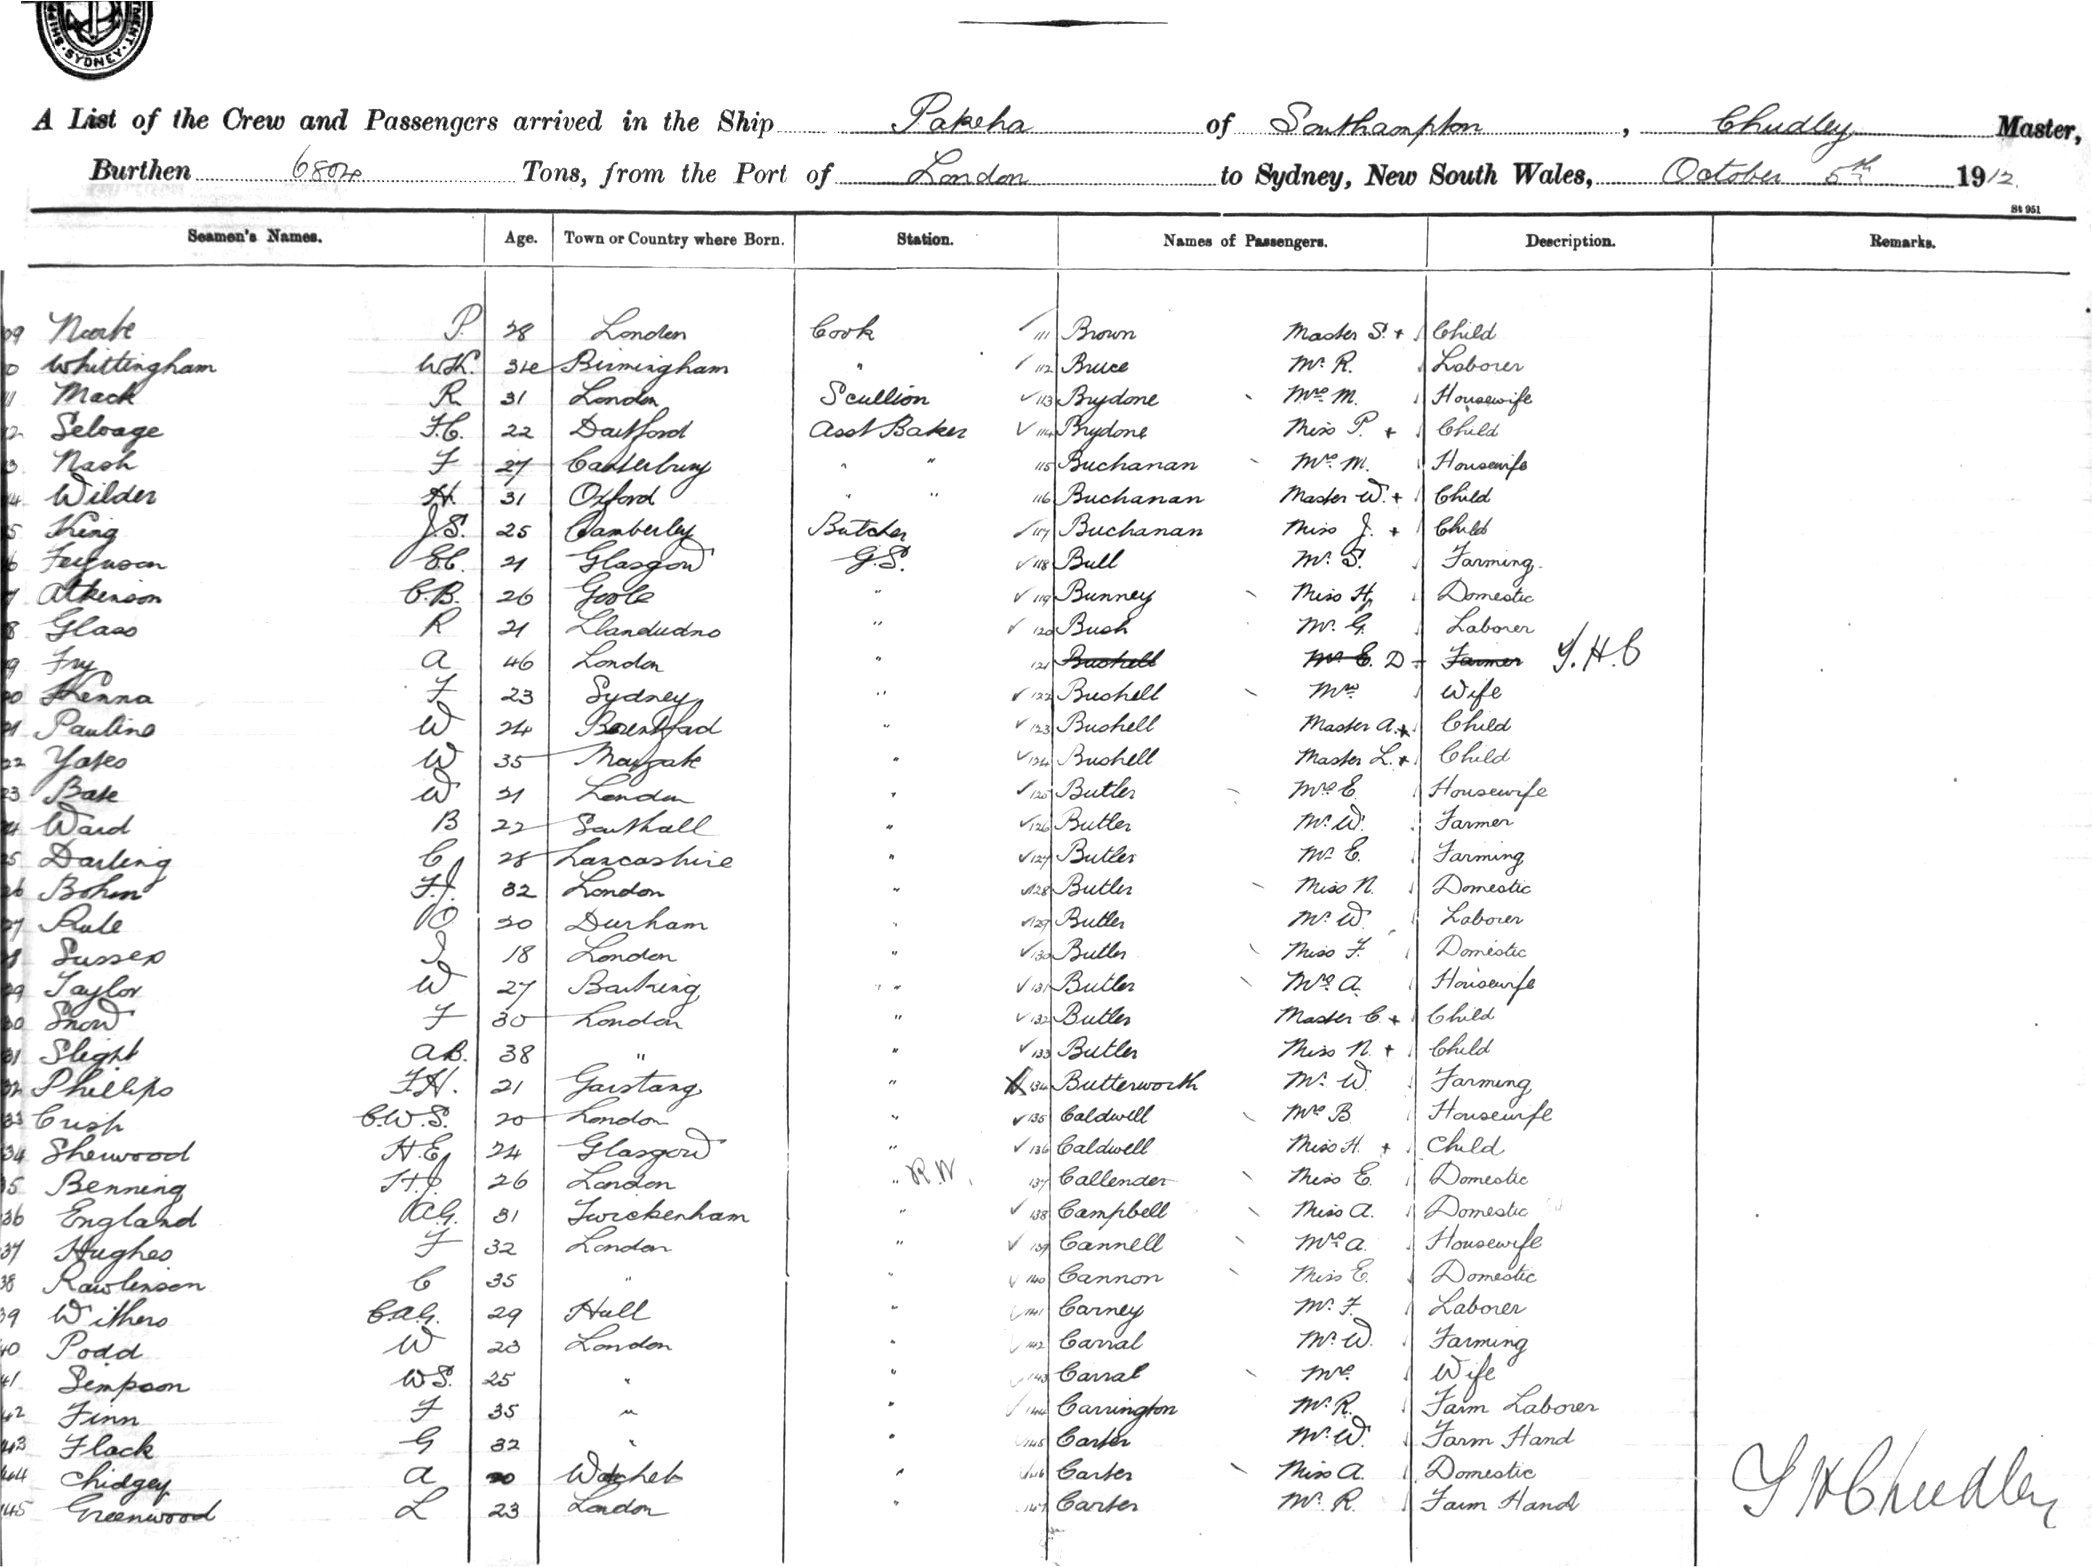 SYDNEY
A List of the Crew and Passengers arrived in the Ship Pakeha of Southampton, Chudley Master,
Burthen 6804 Tons, from the Port of London to Sydney, New South Wales, October 5th 1912.
St 951
Seamen's Names. Age. Town or Country where Born. Station. Names of Passengers. Description. Remarks.
09 P. 28 London Cook 111 Brown Master S. + Child
10 Whittingham W.H. 34 Birmingham " 112 Bruce Mr. R. Laborer
11 Mack R 31 London Scullion 113 Brydone Mrs M. Housewife
12 Selvage F.C. 22 Dartford Asst Baker 114 Brydone Miss P. + Child
13 Nash F 27 Canterbury " " 115 Buchanan Mrs M. Housewife
14 Wilder H. 31 Oxford " " 116 Buchanan Master W. + Child
15 King J.S. 25 Camberley Butcher 117 Buchanan Miss J. + Child
16 Ferguson 21 Glasgow G.S. 118 Bull Mr. S. Farming.
17 Atkinson C.B. 26 Goole " 119 Bunney Miss H. Domestic
18 Glass R 21 Llandudno " 120 Bush Mr. G. Laborer
19 Fry A 46 London " 121 Bushell Mr E. D Farmer T.H.C
20 Kenna F 23 Sydney " 122 Bushell Mrs Wife
21 Pauline W 24 Brentford " 123 Bushell Master A. + Child
22 Yates W 35 Margate " 124 Bushell Master L. + Child
23 Bate W 21 London " 125 Butler Mrs E. Housewife
24 Ward B 22 Southall " 126 Butler Mr. W. Farmer
25 Darling C 28 Lancashire " 127 Butler Mr E. Farming
26 Bohm F.J. 32 London " 128 Butler Miss N. Domestic
27 Rule O 20 Durham " 129 Butler Mr. W. Laborer
28 Sussex J 18 London " 130 Butler Miss F. Domestic
29 Taylor W 27 Barking " 131 Butler Mrs A. Housewife
30 Snow F 30 London " 132 Butler Master C. + Child
31 Slight A.B. 38 " " 133 Butler Miss N. + Child
32 Phillips F.H. 21 Garstang " 134 Butterworth Mr. W. Farming
33 Crisp C.W.S. 20 London " 135 Caldwell Mrs B Housewife
34 Sherwood H.E. 24 Glasgow " 136 Caldwell Miss H. + Child
35 Benning H.J. 26 London " R.W. 137 Callender Miss E. Domestic
36 England A.G. 31 Twickenham " 138 Campbell Miss A. Domestic
37 Hughes F 32 London " 139 Cannell Mrs A. Housewife
38 Rawlinson C 35 " " 140 Cannon Miss E. Domestic
39 Withers C.A.G. 29 Hull " 141 Carney Mr. F. Laborer
40 Podd W 23 London " 142 Carral Mr. W. Farming
41 Simpson W.S. 25 " " 143 Carral Mrs. Wife
42 Finn F 35 " " 144 Carrington Mr. R. Farm Laborer
43 Flack G 32 " " 145 Carter Mr. W. Farm Hand
44 Chidgey A 20 Watchet " 146 Carter Miss A. Domestic
45 Greenwood L 23 London " 147 Carter Mr. R. Farm Hand
T H Chudley